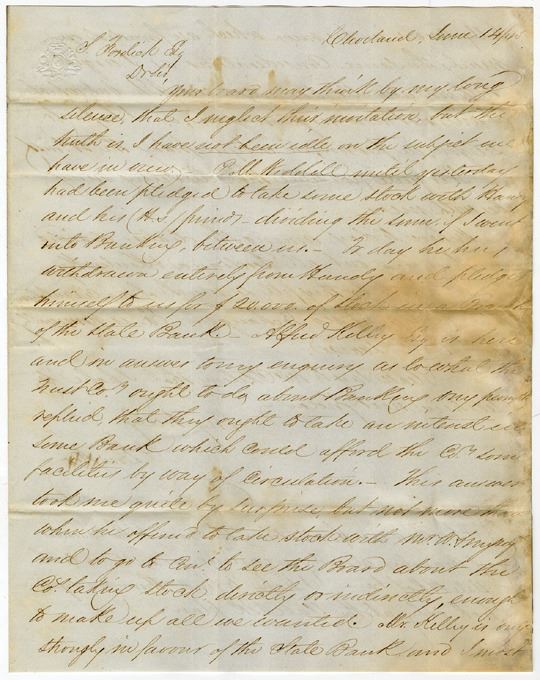 Cleveland, June 14/45
S. Fosdick Esq
Dr Sir,
Your board may think by my long
silence, that I neglect this invitation, but the
truth is, I have not been idle, on the subject we
have in view. P. M. Weddell until yesterday
had been pledged to take some stock with Handy
and his friends - dividing the same, if I went
into Banking, between us. - To day he has
withdrawn entirely from Handy and pledged
himself to us for $20.000. of Stock in a Branch
of the State Bank - Alfred Kelley Esq is here
and in answer to my enquiry as to what the
Trust Coy ought to do, about Banking, very promptly
replied that they ought to take an interest in
some Bank which could afford the Coy some
facilities by way of circulation. - This answer
took me quite by surprise, but not more than
when he offered to take stock with me
and to go to Cin. to see the Board about the
Co. taking stock, directly or indirectly, enough
to make up all we wanted. Mr. Kelley is very
strongly in favour of the State Bank and I must